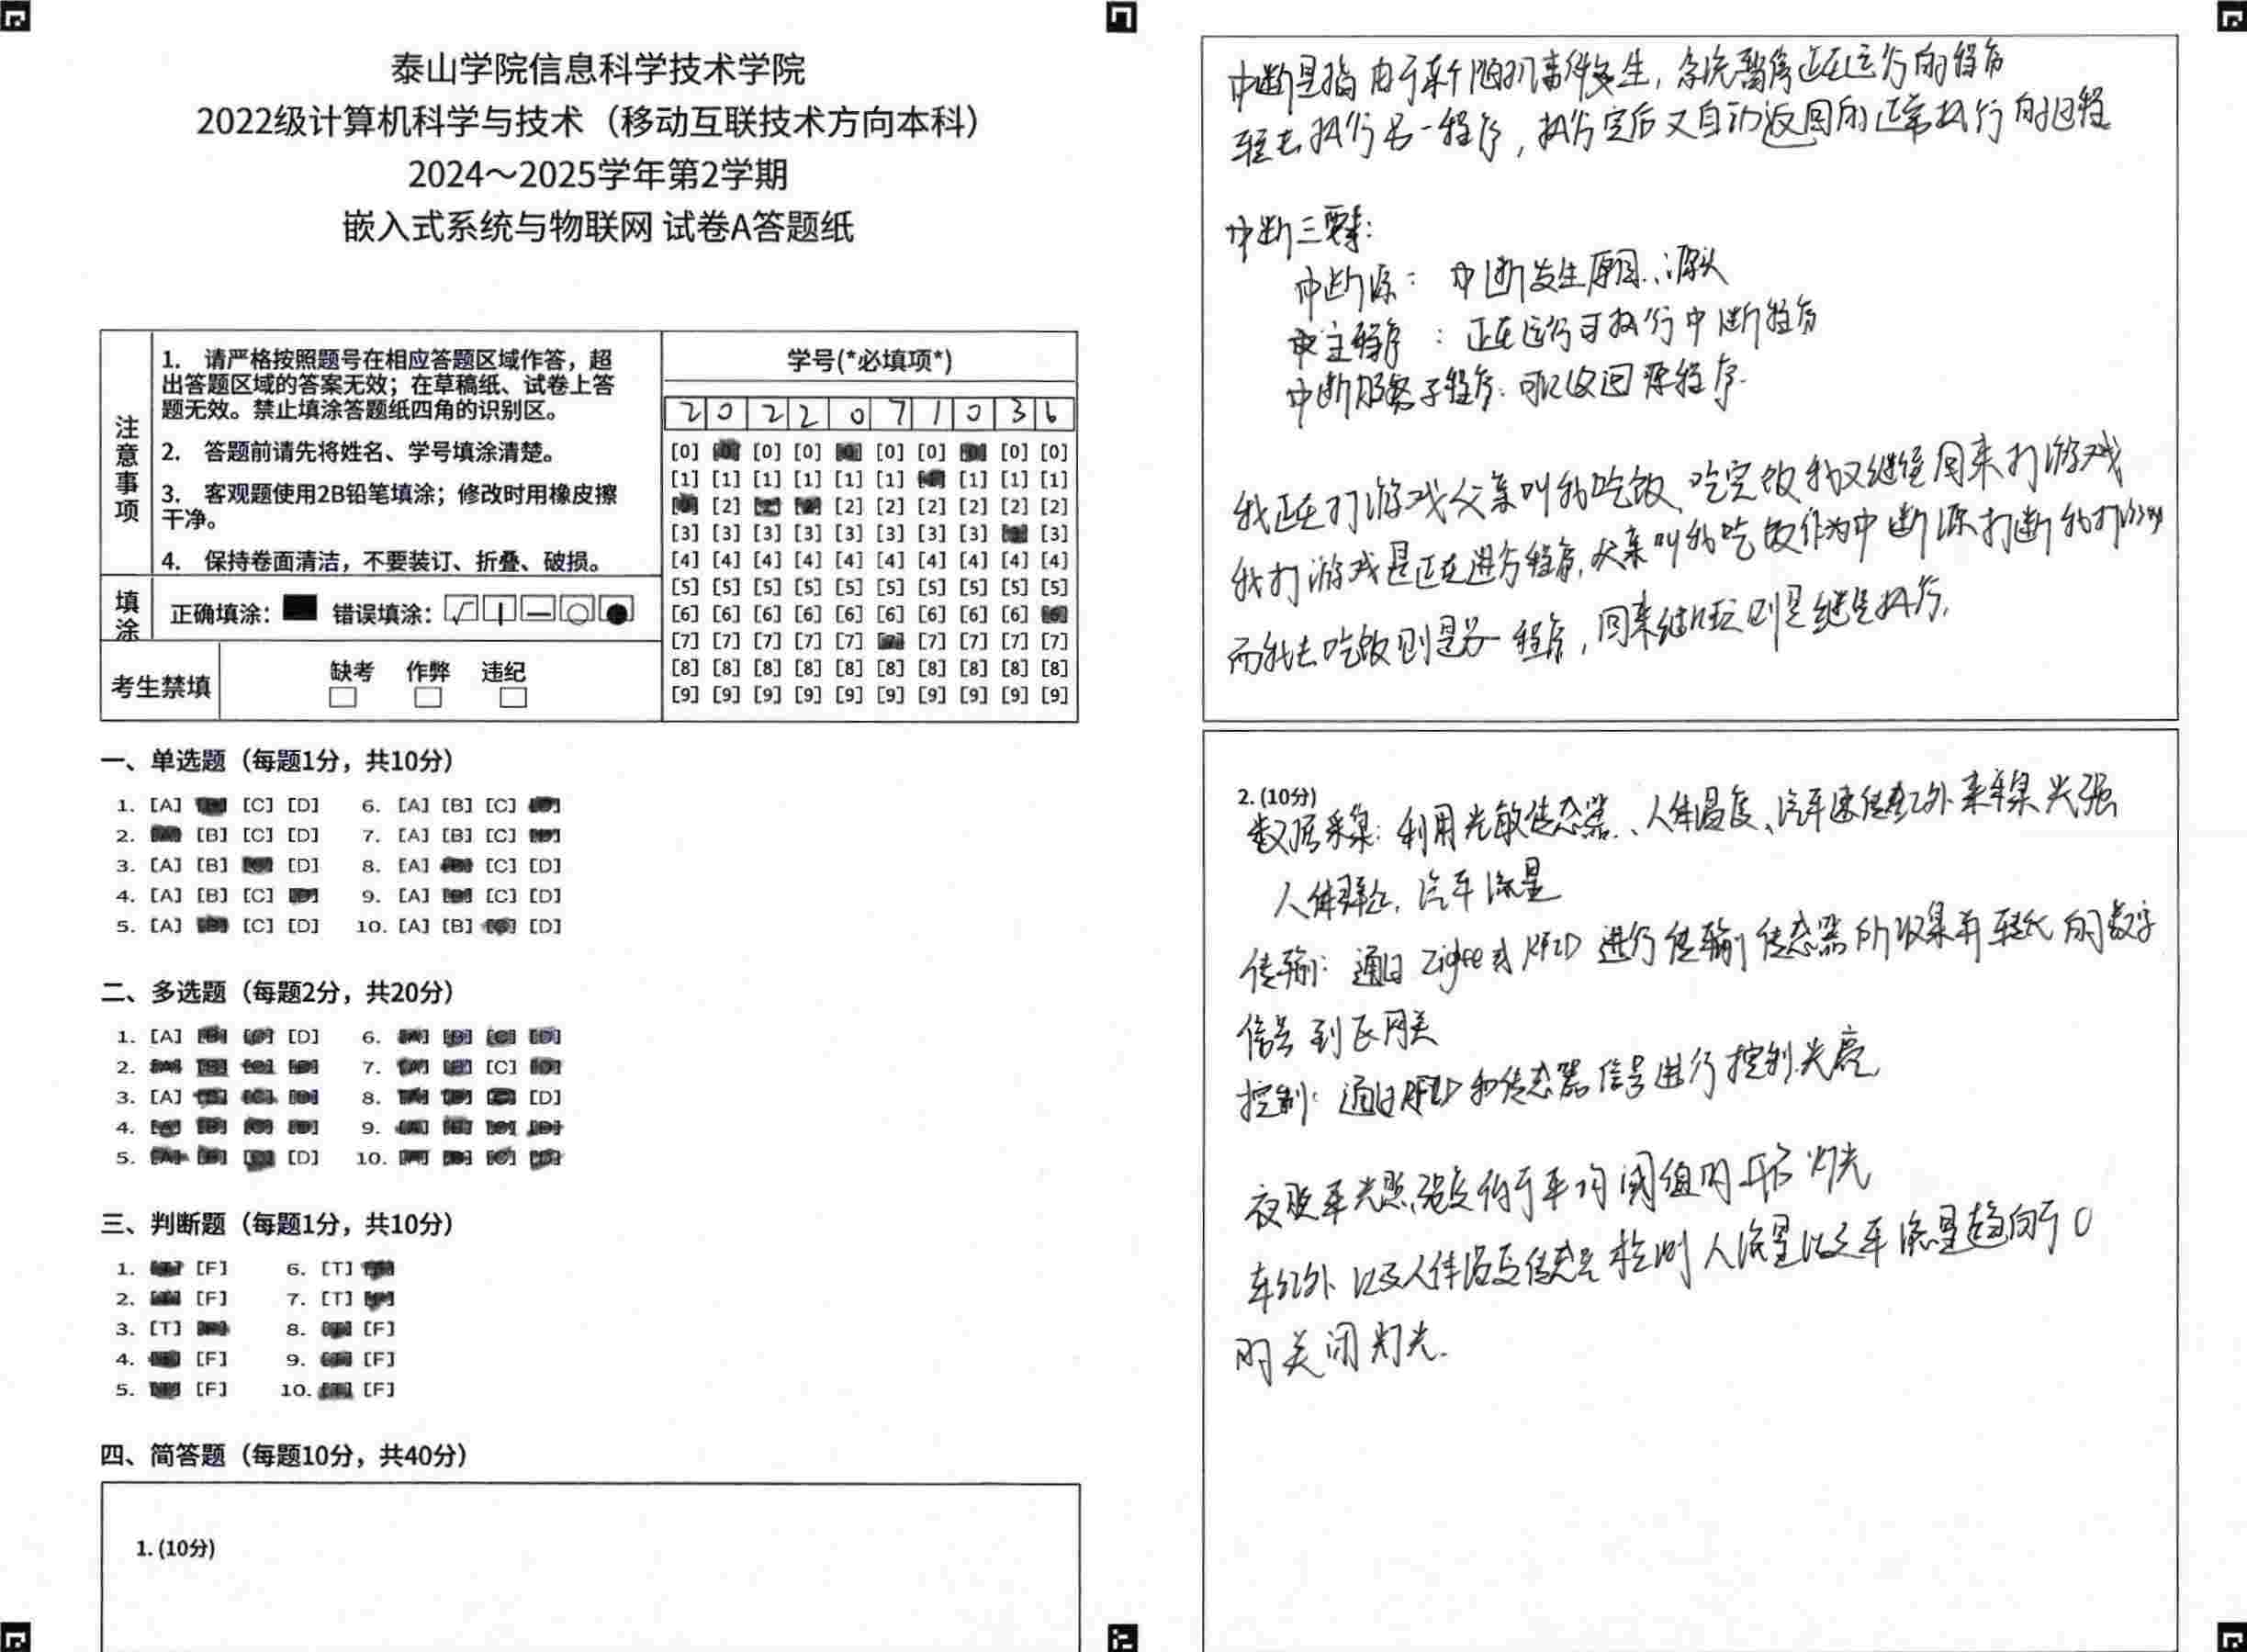 泰山学院信息科学技术学院
2022级计算机科学与技术（移动互联技术方向本科）
2024～2025学年第2学期
嵌入式系统与物联网 试卷A答题纸
注意事项
1. 请严格按照题号在相应答题区域作答，超
出答题区域的答案无效；在草稿纸、试卷上答
题无效。禁止填涂答题纸四角的识别区。
2. 答题前请先将姓名、学号填涂清楚。
3. 客观题使用2B铅笔填涂；修改时用橡皮擦
干净。
4. 保持卷面清洁，不要装订、折叠、破损。
填涂 正确填涂： 错误填涂：
考生禁填 缺考 作弊 违纪
学号(*必填项*)
2 0 2 2 0 7 1 0 3 6
[0] [0] [0] [0] [0] [0] [0]
[1] [1] [1] [1] [1] [1] [1] [1] [1]
[2] [2] [2] [2] [2] [2] [2]
[3] [3] [3] [3] [3] [3] [3] [3] [3]
[4] [4] [4] [4] [4] [4] [4] [4] [4] [4]
[5] [5] [5] [5] [5] [5] [5] [5] [5] [5]
[6] [6] [6] [6] [6] [6] [6] [6] [6] [6]
[7] [7] [7] [7] [7] [7] [7] [7] [7]
[8] [8] [8] [8] [8] [8] [8] [8] [8] [8]
[9] [9] [9] [9] [9] [9] [9] [9] [9] [9]
一、单选题（每题1分，共10分）
1. [A] [C] [D] 6. [A] [B] [C]
2. [B] [C] [D] 7. [A] [B] [C]
3. [A] [B] [D] 8. [A] [C] [D]
4. [A] [B] [C] 9. [A] [C] [D]
5. [A] [B] [C] [D] 10. [A] [B] [D]
二、多选题（每题2分，共20分）
1. [A] [B] [C] [D] 6. [A] [B] [C] [D]
2. 7. [A] [B] [C] [D]
3. [A] 8. [D]
4. 9.
5. [D] 10.
三、判断题（每题1分，共10分）
1. [F] 6. [T]
2. [F] 7. [T]
3. [T] 8. [F]
4. [F] 9. [F]
5. [F] 10. [F]
四、简答题（每题10分，共40分）
1. (10分)
中断是指由于某个随机事件发生，系统暂停正在运行的程序
转去执行另一程序，执行完后又自动返回的正常执行的过程
中断三要素：
中断源：中断发生原因、源头
主程序：正在运行可执行中断程序
中断服务子程序：可以返回原程序.
我正在打游戏父亲叫我吃饭、吃完饭我又继续回来打游戏
我打游戏是正在进行程序，父亲叫我吃饭作为中断源打断我打游戏
而我去吃饭则是另一程序，回来继续玩则是继续执行，
2. (10分)
数据采集：利用光敏传感器、人体温度、汽车速传红外来采集光强
人体 汽车流量
传输：通过 Zigbee或RFID 进行传输传感器所收集并转化的数字
信号到网关
控制：通过RFID和传感器信号进行控制光亮
光照强度低于平均阈值时开启灯光
车红外以及人体温度传感器检测人流量以及车流量趋向于0
时关闭灯光.